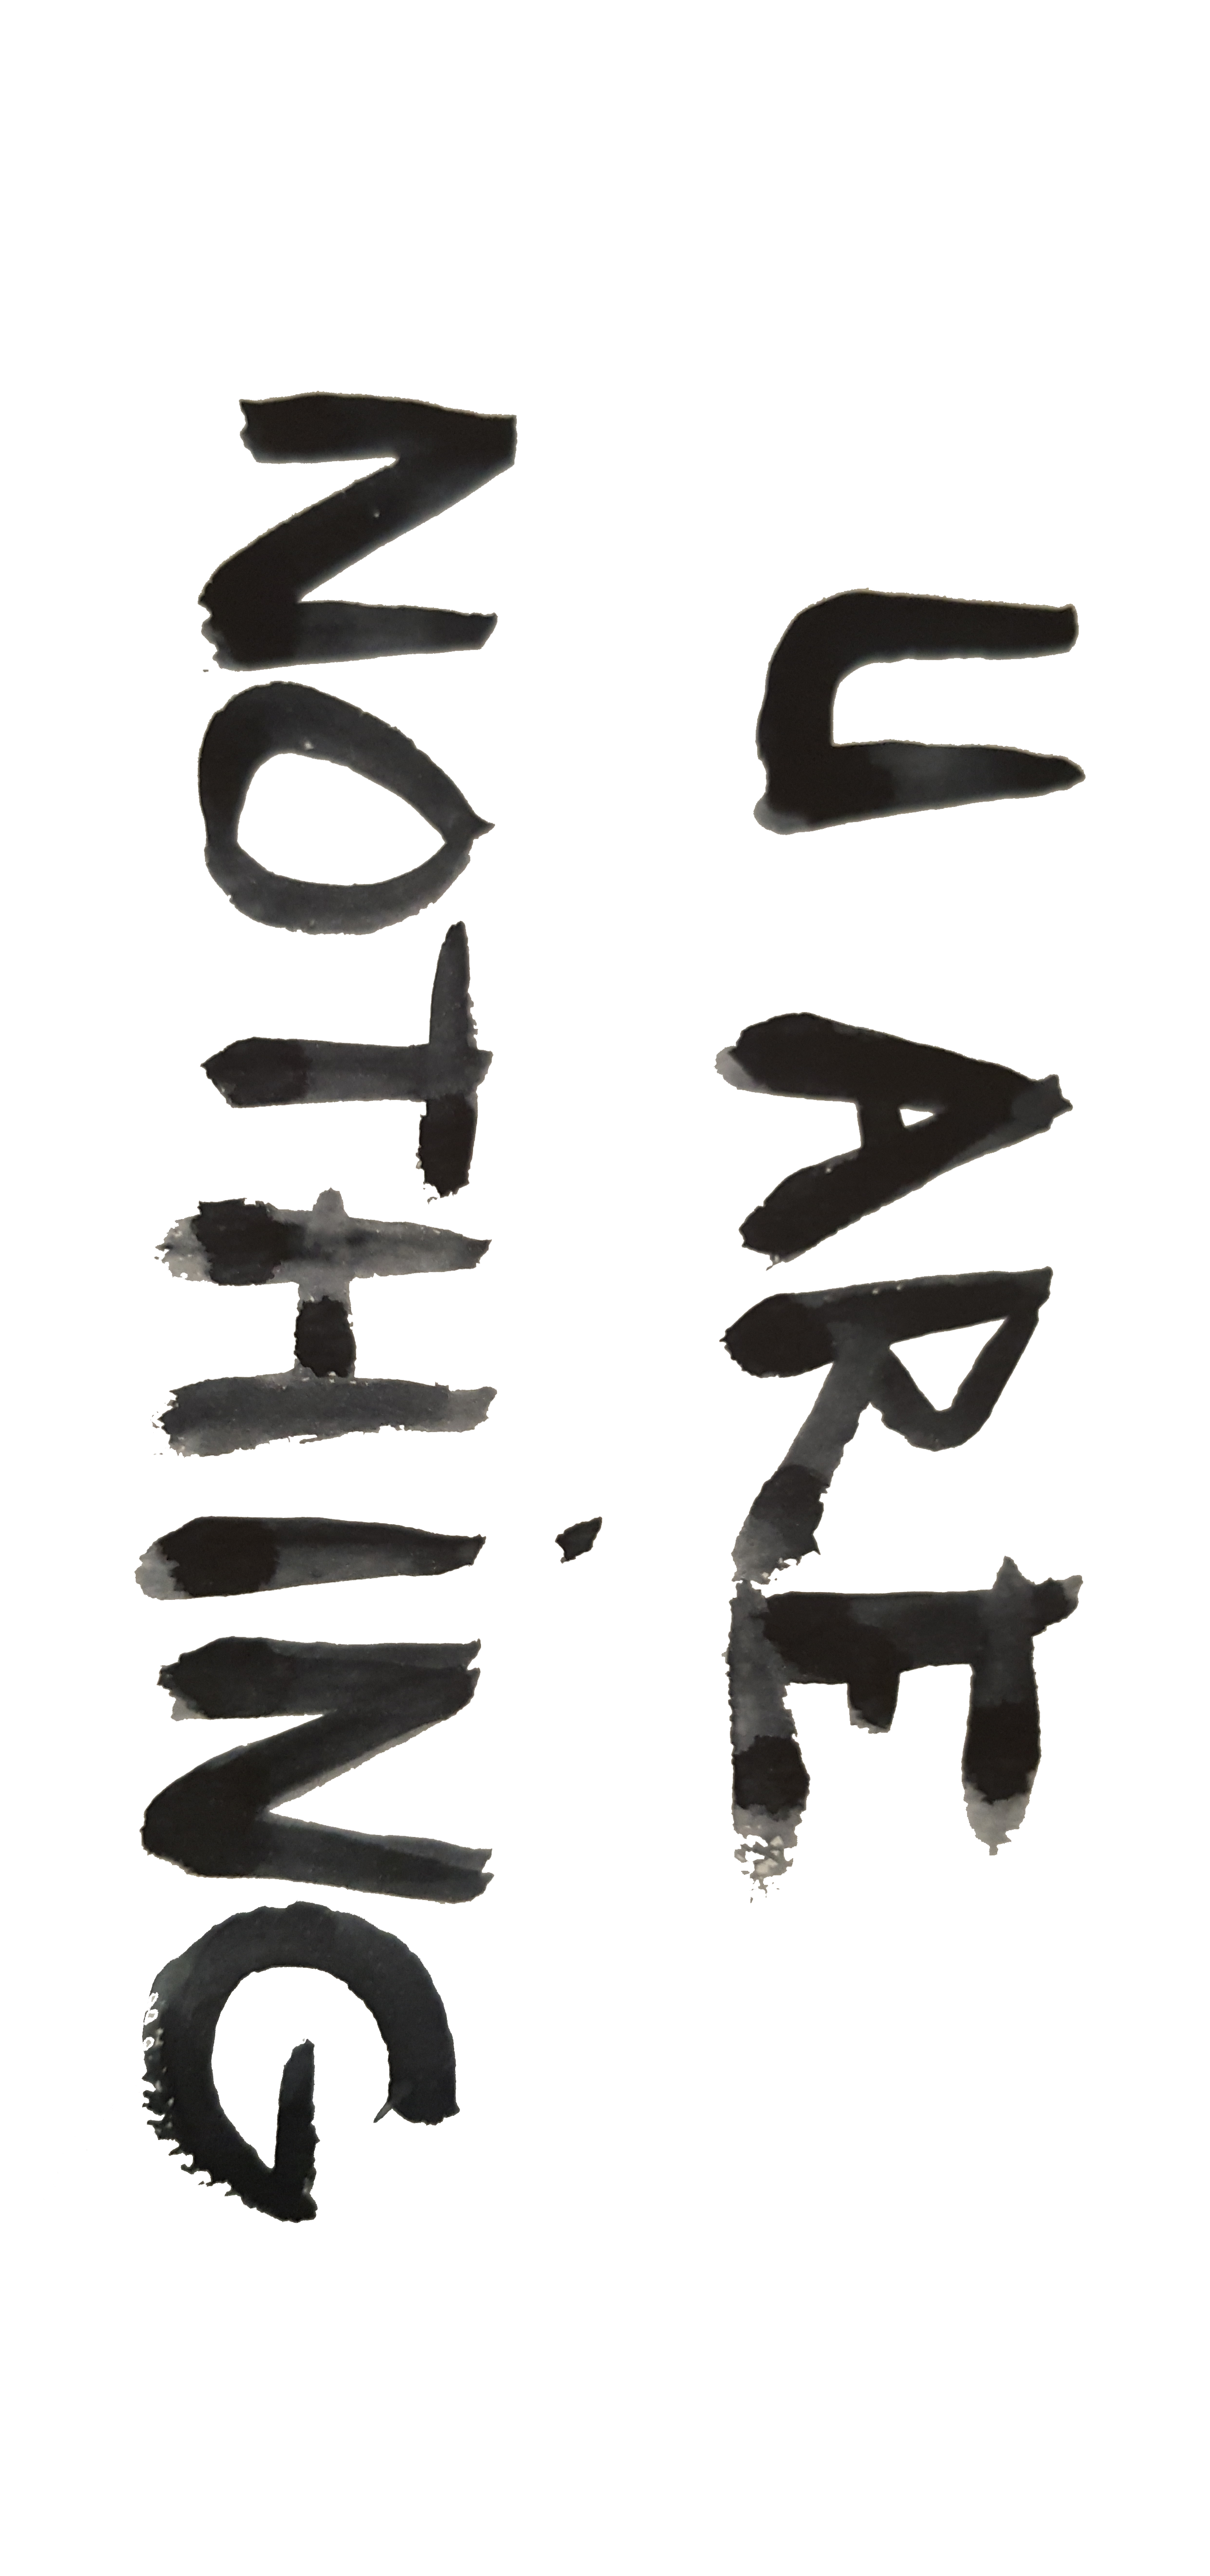 U ARE
NOTHİNG